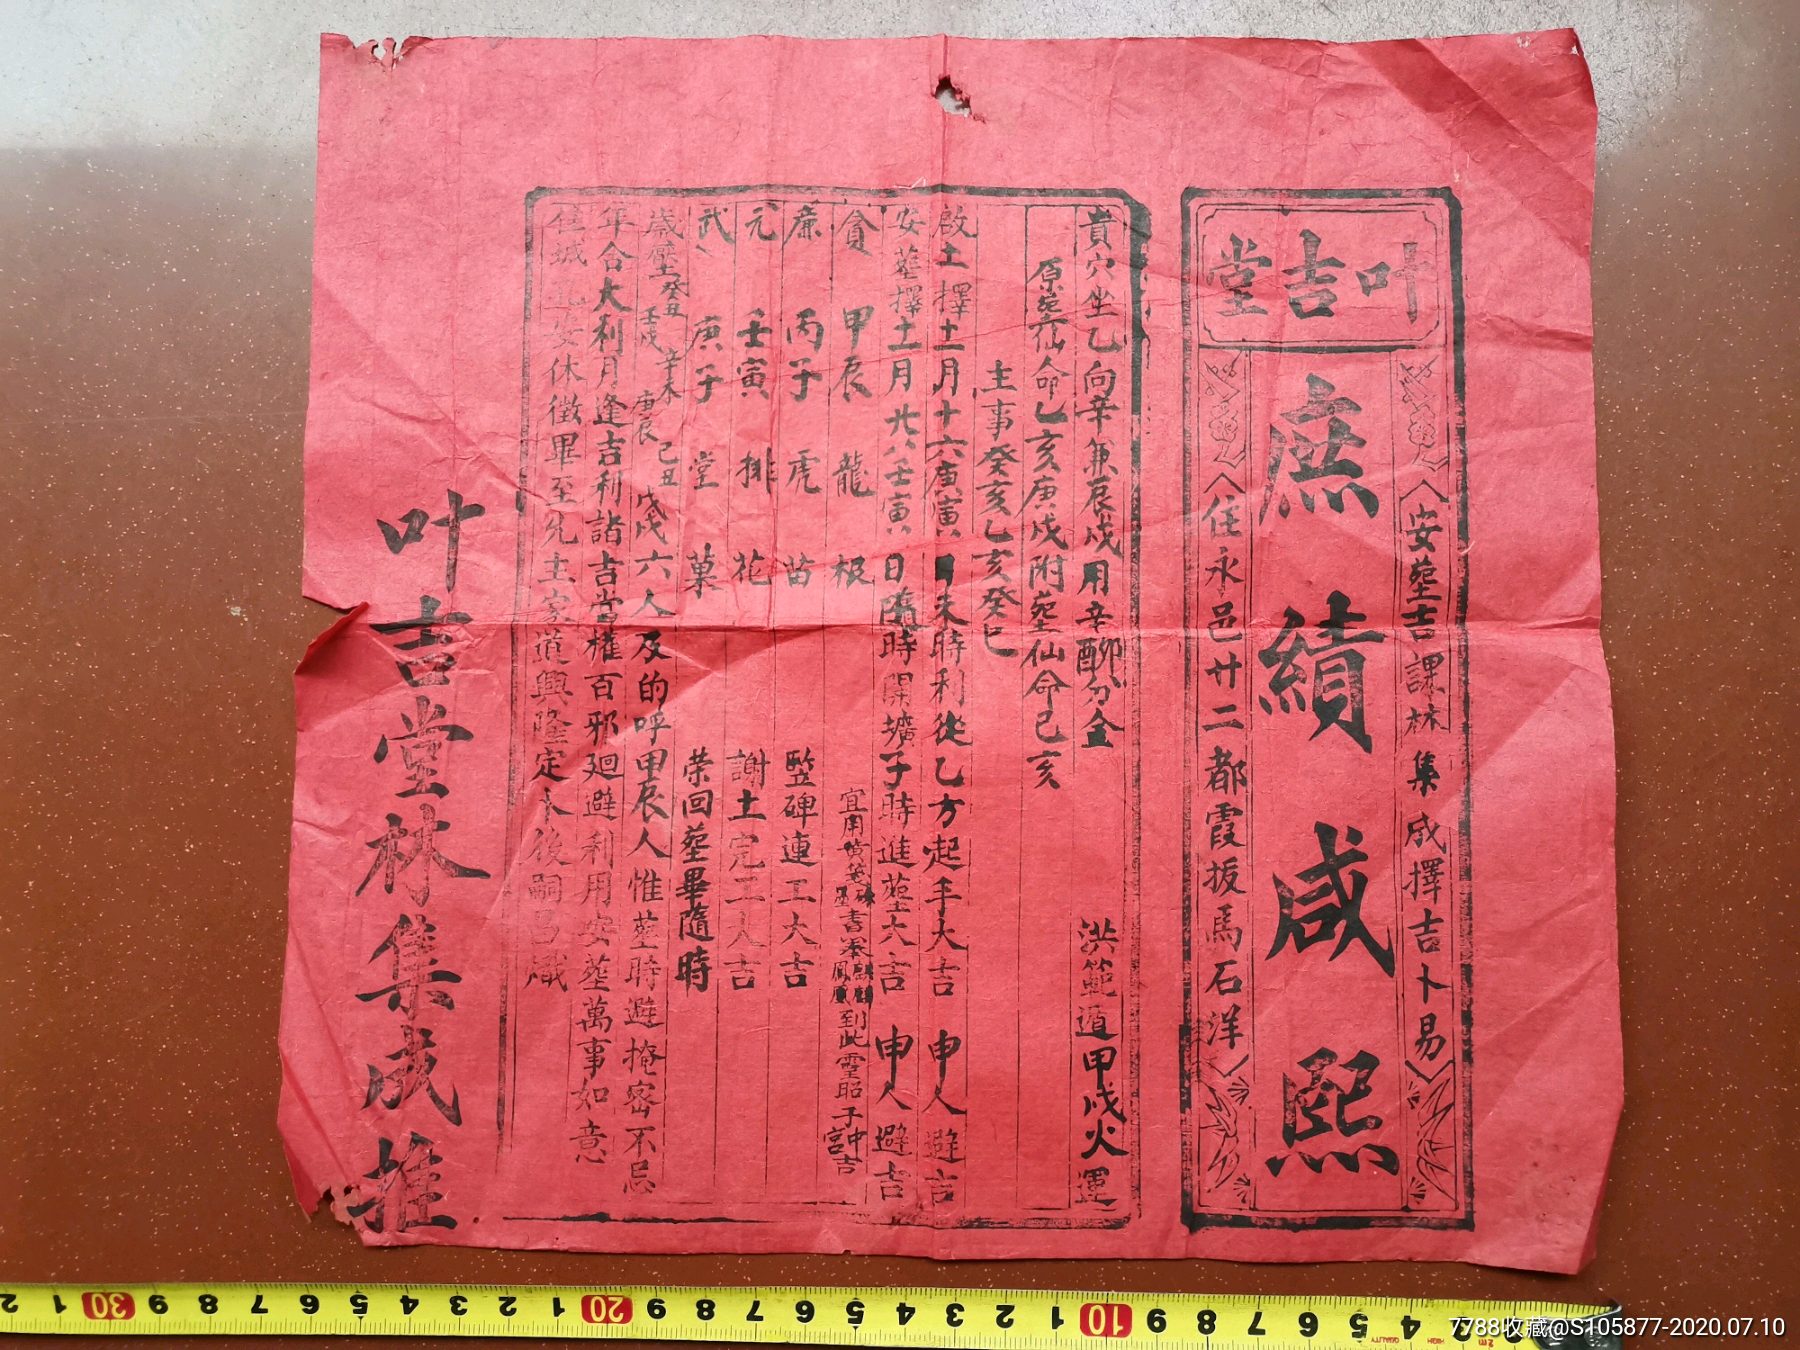 叶吉堂
安塟吉課林集成擇吉卜易
庶績咸熙
住永邑廿二都霞扳馬石洋
貴穴坐乙向辛兼辰戍用辛酉卯分金 洪範遁甲戍火運
原塟仙命乙亥庚戍附塟仙命己亥
主事癸亥乙亥癸巳
啟土擇十二月十六庚寅日未時利從乙方起手大吉 申人避吉
安塟擇十二月廿八壬寅日隨時開壙子時進塟大吉 申人避吉
貪 甲辰 龍 根 宜用 書 到此靈昭子中宮吉
廉 丙子 虎 苗 竪碑連工大吉
元 壬寅 排 花 謝土完工大吉
武 庚子 堂 菓 荣回塟畢隨時
歲壓癸丑 壬戍 辛未 庚辰 己丑 戊戍六人及的呼甲辰人惟塟時避掩密不忌
年合大利月逢吉利諸吉當權百邪廻避利用安塟萬事如意
佳城 安休徵畢至先主家道興隆定卜後嗣昌熾
叶吉堂林集成推
30 20 10
7788收藏@S105877-2020.07.10